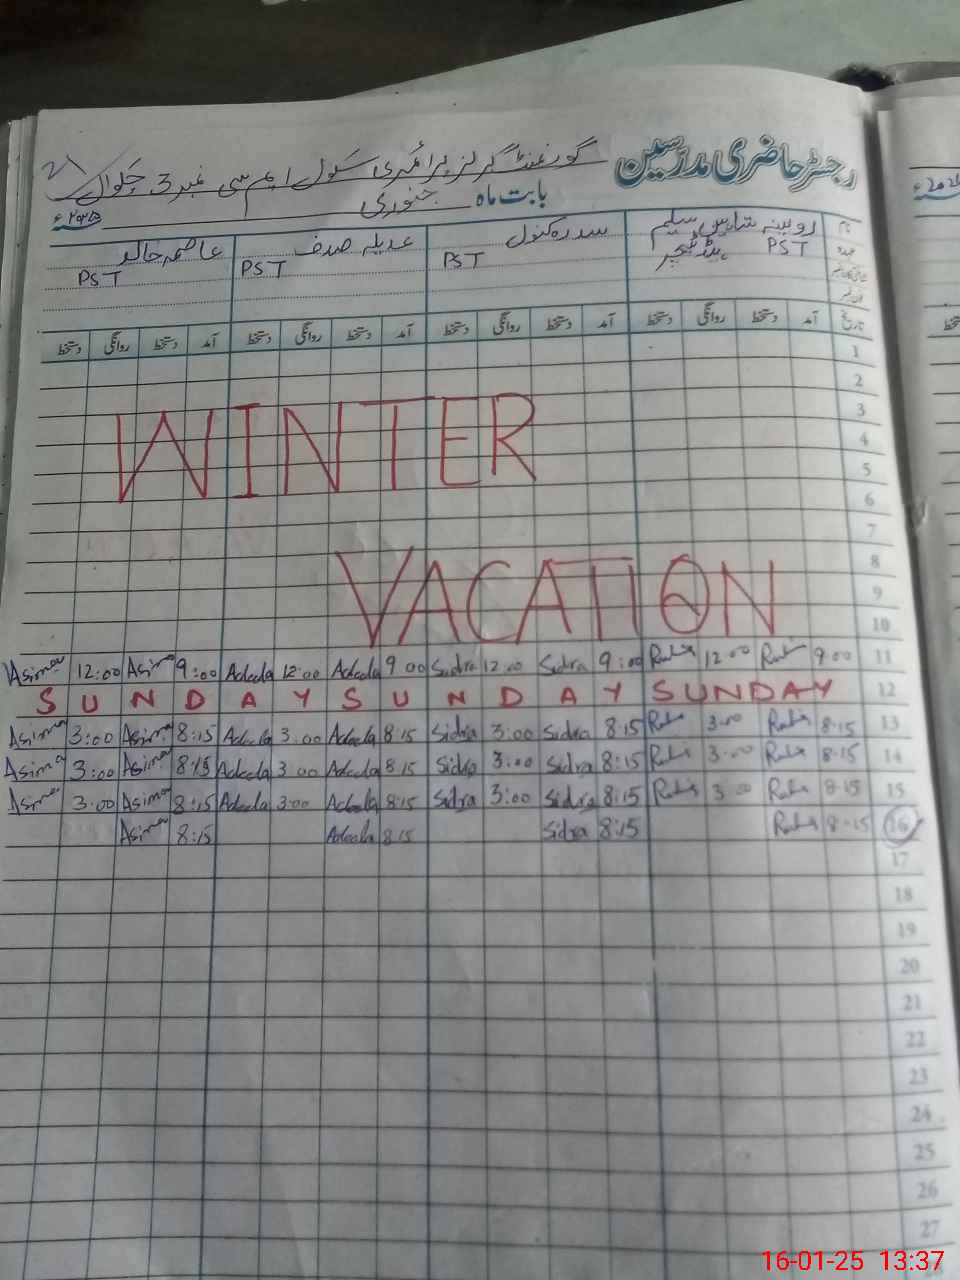 رجسٹر حاضری مدرسین گورنمنٹ گرلز پرائمری سکول ایم سی نمبر 3 چکوال
بابت ماہ جنوری ۲۰۲۵ء
نام روبینہ شاہین سلیم سدرہ کنول عدیلہ صدف عاصمہ خالد
عہدہ PST ہیڈ ٹیچر PST PST PST
تاریخ آمد دستخط روانگی دستخط آمد دستخط روانگی دستخط آمد دستخط روانگی دستخط آمد دستخط روانگی دستخط
1
2
3
4
5
WINTER
6
7
8
9
10
VACATION
Asima 12:00 Asima 9:00 Adeela 12:00 Adeela 9 00 Sidra 12:00 Sidra 9:00 12 00 9 00 11
SUNDAY SUNDAY SUNDAY 12
Asima 3:00 Asima 8:15 Adeela 3 00 Adeela 8 15 Sidra 3:00 Sidra 8:15 3 00 8-15 13
Asima 3:00 Asima 8:15 Adeela 3 00 Adeela 8 15 Sidra 3:00 Sidra 8:15 3 00 8-15 14
Asima 3:00 Asima 8:15 Adeela 3:00 Adeela 8:15 Sidra 3:00 Sidra 8:15 3 00 8-15 15
Asima 8:15 Adeela 8:15 Sidra 8:15 8-15 16
17
18
19
20
21
22
23
24
25
26
27
16-01-25 13:37